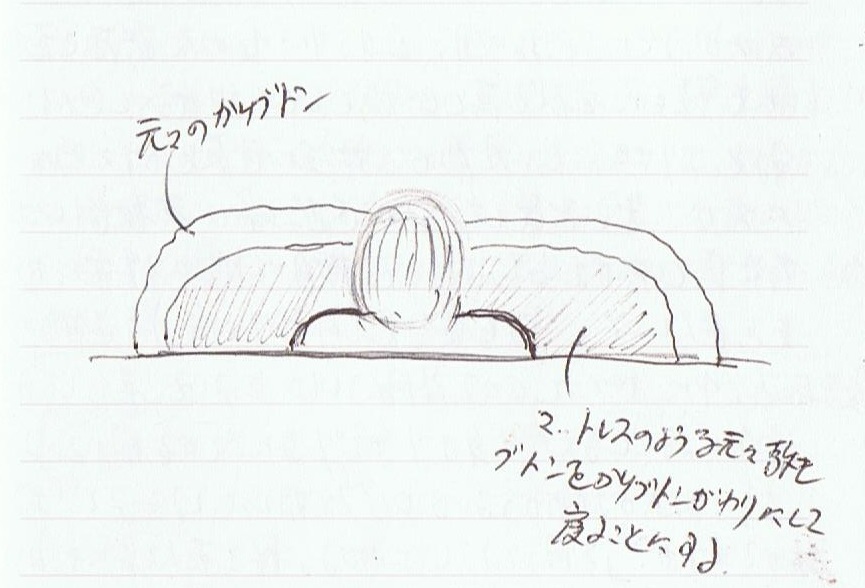 元々のかけブトン
マットレスのような元々敷き
ブトンをかけブトンがわりにして
寝ることにする